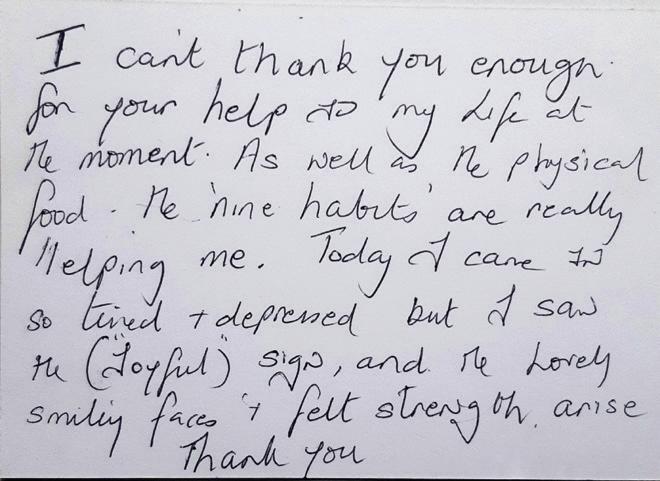 I can't thank you enough.
for your help to my life at
the moment. As well as the physical
food. the 'nine habits' are really
Helping me. Today I came in
so tired + depressed but I saw
the ("Joyful") sign, and the lovely
smiley faces + felt strength arise
Thank you